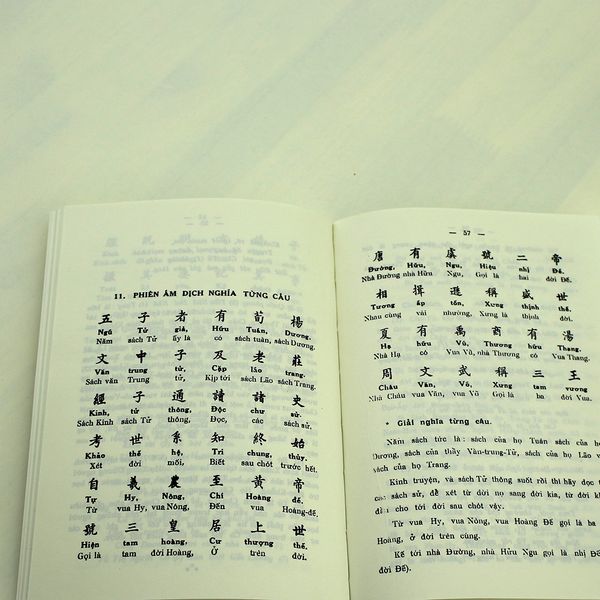 11. PHIÊN ÂM DỊCH NGHĨA TỪNG CÂU
五 子 者 有 荀 楊
Ngũ Tử giả, Hữu Tuân, Dương.
Năm sách Tử ấy là có sách tuân, sách Dương.
文 中 子 及 老 莊
Văn trung tử, Cập lão trang.
Sách văn Trung tử, Kịp tới sách Lão sách Trang.
經 子 通 讀 諸 史
Kinh, tử thông, Độc chư sử.
Sách Kinh, sách Tử thông, Đọc, các sách sử.
考 世 系 知 終 始
Khảo thế hệ, Tri chung, thủy.
Xét đời mối, Biết sau chót trước hết.
自 羲 農 至 黃 帝
Tự Hy, Nông, Chí Hoàng đế.
Từ vua Hy, vua Nông, Đến vua Hoàng-đế.
號 三 皇 居 上 世
Hiện tam hoàng, Cư thượng thế.
Gọi là tam đời Hoàng, Ở trên đời.
— 57 —
唐 有 虞 號 二 帝
Đường, Hữu, Ngu, Hiệu nhị Đế.
Nhà Đường nhà Hữu Ngu, Gọi là hai đời Đế.
相 揖 遜 稱 盛 世
Tương ấp tốn, Xưng thịnh thế.
Nhau cùng vái nhường, Xưng là thịnh đời.
夏 有 禹 商 有 湯
Hạ hữu Vũ, Thương hữu Thang.
Nhà Hạ có Vua Vũ, nhà Thương có Vua Thang.
周 文 武 稱 三 王
Châu Văn, Võ, Xưng tam vương
Nhà Châu vua Văn, Võ Gọi là ba đời Vua.
• Giải nghĩa từng câu.
Năm sách tức là : sách của họ Tuân sách của họ
Dương, sách của thầy Văn-trung-Tử, sách của họ Lão và
sách của họ Trang.
Kinh truyện, và sách Tử thông suốt rồi thì hãy đọc tới
các sách sử, để xét từ đời nọ sang đời kia, từ đời khởi
đầu cho tới đời sau chót vậy.
Từ vua Hy, vua Nông, vua Hoàng Đế gọi là ba
Hoàng, ở đời trên cùng.
Kế tới nhà Đường, nhà Hữu Ngu gọi là nhị Đế
đời Đế).